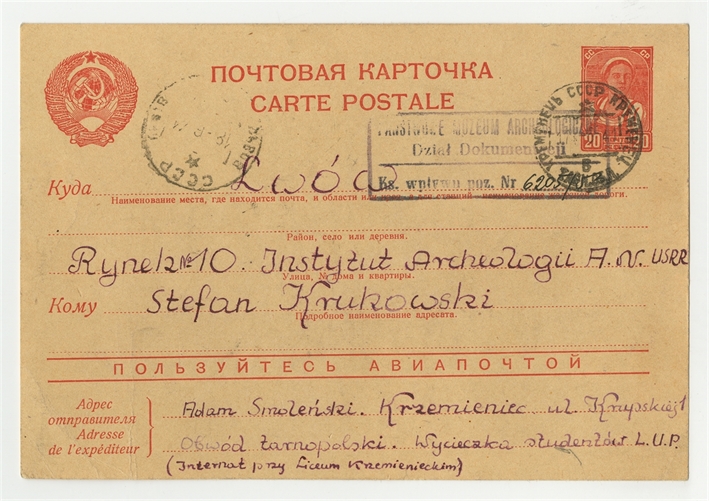 ПОЧТОВАЯ КАРТОЧКА
CARTE POSTALE
СС СР
20 20
СССР
КРЕМЕНЕЦЬ СССР КРЕМЕНЕЦ
PAŃSTWOWE MUZEUM ARCHEOLOGICZNE
Dział Dokumentacji
Ks. wpływu poz. Nr 6205
Куда Lwów
Наименование места, где находится почта, и области или края, а для станций наименование железной дороги.
Район, село или деревня.
Rynek № 10. Instytut Archeologii A.N. USRR
Улица, № дома и квартиры.
Кому Stefan Krukowski
Подробное наименование адресата.
ПОЛЬЗУЙТЕСЬ АВИАПОЧТОЙ
Адрес отправителя
Adresse de l'expéditeur
Adam Smoleński. Krzemieniec ul. Krupskiej 1
Obwód tarnopolski. Wycieczka studentów L.U.P.
(Internat przy Liceum Krzemienieckim)